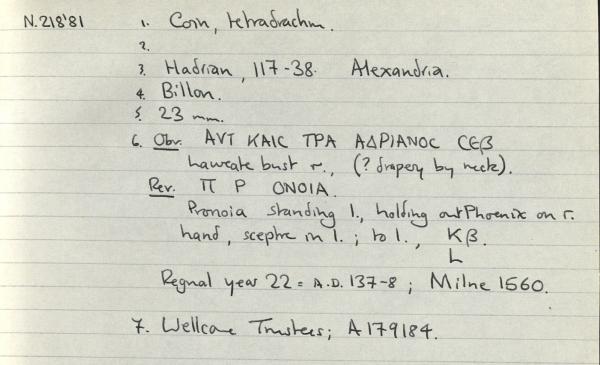 N.218'81 1. Coin, tetradrachm.
2.
3. Hadrian, 117-38. Alexandria.
4. Billon.
5. 23 mm.
6. Obv. ΑVΤ ΚΑΙC ΤΡΑ ΑΔΡΙΑΝΟC CЄβ
laureate bust r., (? drapery by neck).
Rev. Π Ρ ΟΝΟΙΑ.
Pronoia standing l., holding out Phoenix on r.
hand, sceptre in l.; to l., Κβ.
L
Regnal year 22 = A.D. 137-8; Milne 1560.
7. Wellcome Trustees; A179184.